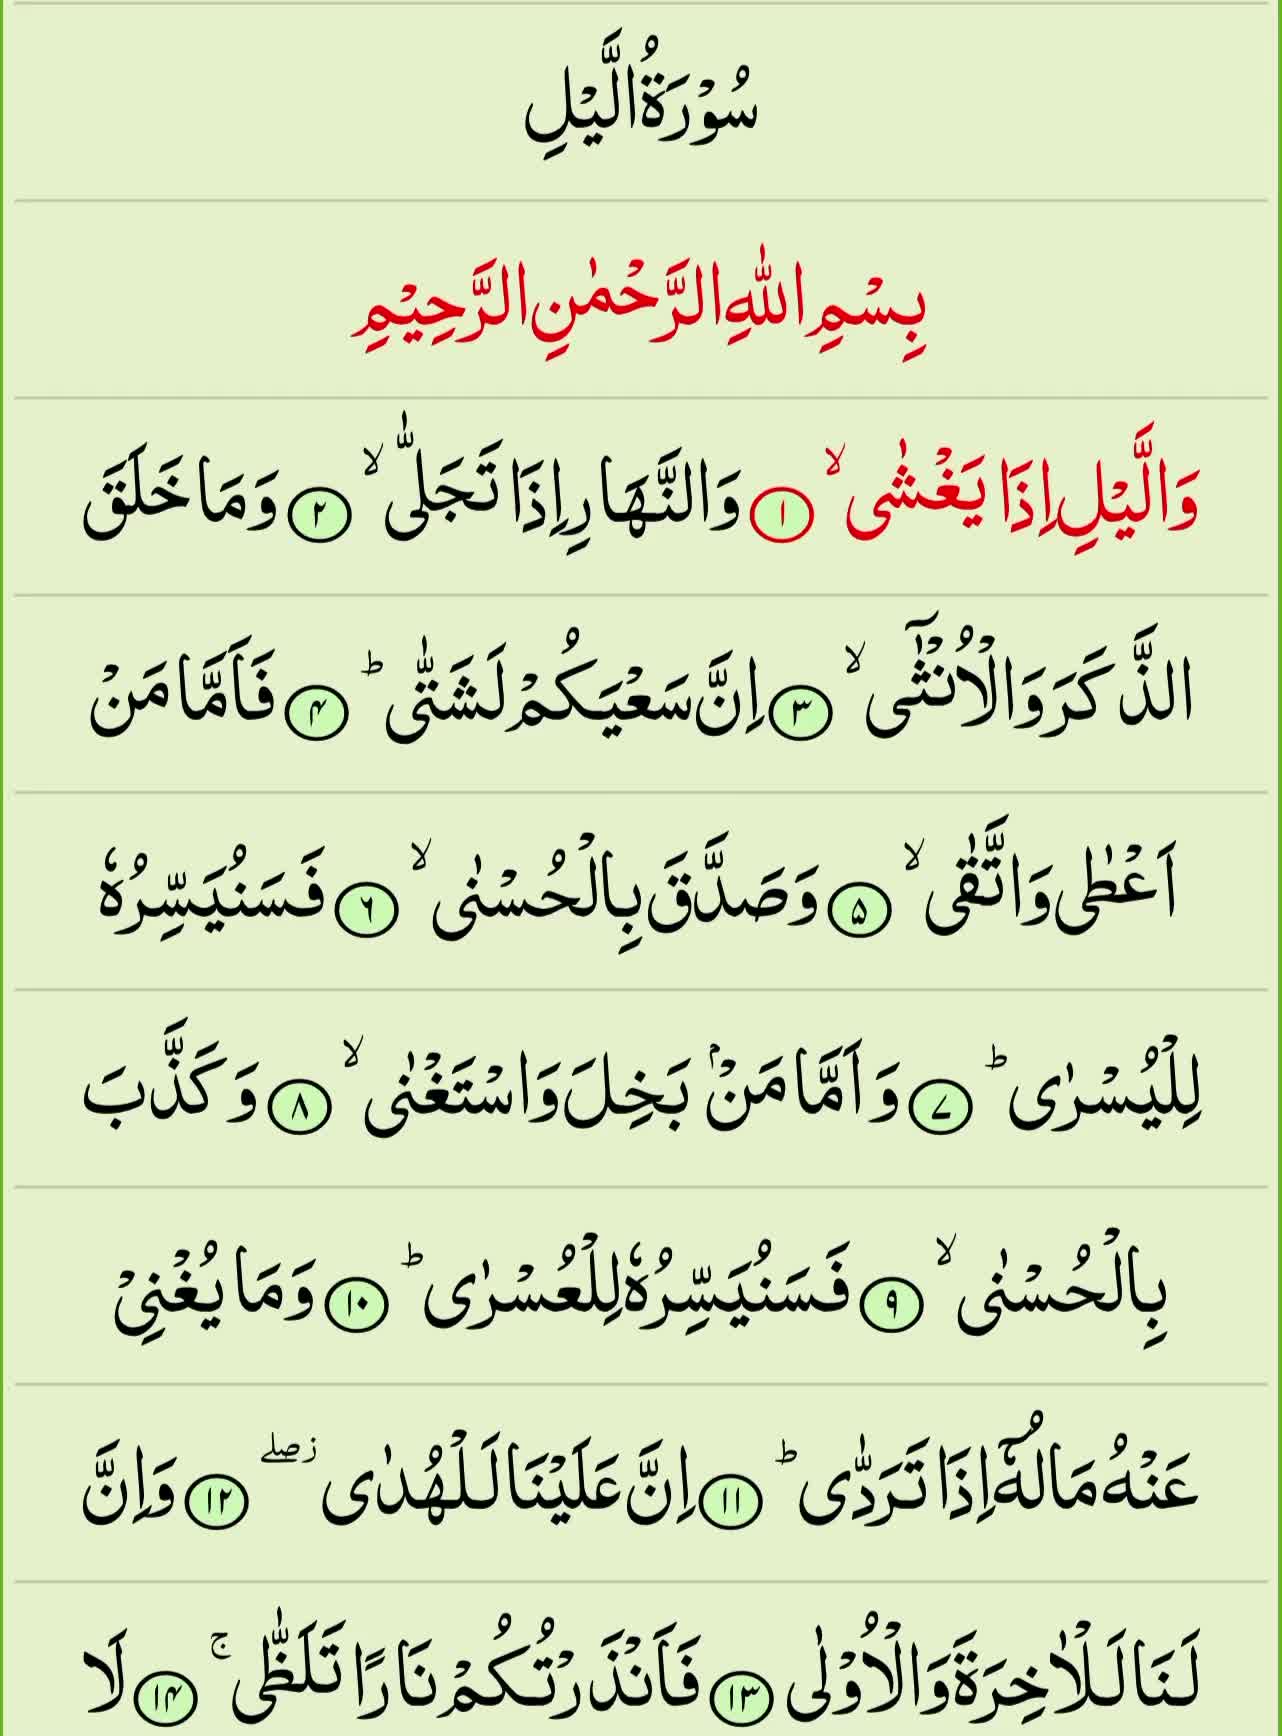 سُوْرَۃُ الَّیْلِ
بِسْمِ اللّٰهِ الرَّحْمٰنِ الرَّحِیْمِ
وَالَّیْلِ اِذَا یَغْشٰی ۙ ۱ وَالنَّهَارِ اِذَا تَجَلّٰی ۙ ۲ وَمَا خَلَقَ
الذَّكَرَ وَالْاُنْثٰۤی ۙ ۳ اِنَّ سَعْیَكُمْ لَشَتّٰی ؕ ۴ فَاَمَّا مَنْ
اَعْطٰی وَاتَّقٰی ۙ ۵ وَصَدَّقَ بِالْحُسْنٰی ۙ ۶ فَسَنُیَسِّرُهٗ
لِلْیُسْرٰی ؕ ۷ وَاَمَّا مَنْۢ بَخِلَ وَاسْتَغْنٰی ۙ ۸ وَكَذَّبَ
بِالْحُسْنٰی ۙ ۹ فَسَنُیَسِّرُهٗ لِلْعُسْرٰی ؕ ۱۰ وَمَا یُغْنِیْ
عَنْهُ مَالُهٗۤ اِذَا تَرَدّٰی ؕ ۱۱ اِنَّ عَلَیْنَا لَلْهُدٰی ۖؗ ۱۲ وَاِنَّ
لَنَا لَلْاٰخِرَةَ وَالْاُوْلٰی ۱۳ فَاَنْذَرْتُكُمْ نَارًا تَلَظّٰی ۚ ۱۴ لَا